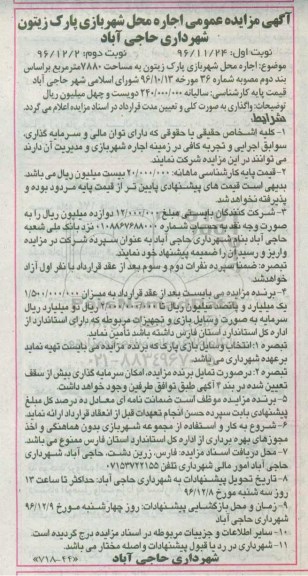 آگهی مزایده عمومی اجاره محل شهربازی پارک زیتون
شهرداری حاجی آباد
نوبت اول: ۹۶/۱۱/۲۴ نوبت دوم: ۹۶/۱۲/۲
موضوع: اجاره محل شهربازی پارک زیتون به مساحت ۷۸۸۰مترمربع براساس
بند دوم مصوبه شماره ۳۶ مورخه ۹۶/۱۰/۱۳ شورای اسلامی شهر حاجی آباد
قیمت پایه کارشناسی: سالیانه ۲۴۰/۰۰۰/۰۰۰ دویست و چهل میلیون ریال
توضیحات: واگذاری به صورت کلی و تعیین مدت قرارداد در اسناد مزایده اعلام می گردد.
شرایط:
۱- کلیه اشخاص حقیقی یا حقوقی که دارای توان مالی و سرمایه گذاری،
سوابق اجرایی و تجربه کافی در زمینه اجاره شهربازی و مدیریت آن دارند
می توانند در این مزایده شرکت نمایند.
۲- قیمت پایه کارشناسی ماهانه: ۲۰/۰۰۰/۰۰۰ بیست میلیون ریال می باشد.
بدیهی است قیمت های پیشنهادی پایین تر از قیمت پایه مردود بوده و
پذیرفته نخواهد شد.
۳- شرکت کنندگان بایستی مبلغ ۱۲/۰۰۰/۰۰۰ دوازده میلیون ریال را به
صورت وجه نقد به حساب شماره ۰۱۰۸۸۶۷۶۸۸۰۰۰ نزد بانک ملی شعبه
حاجی آباد بنام شهرداری حاجی آباد به عنوان سپرده شرکت در مزایده
واریز و رسید آن را ضمیمه پیشنهاد خود نمایند.
تبصره: ضمنا سپرده نفرات دوم و سوم بعد از عقد قرارداد با نفر اول آزاد
خواهدشد.
۴- برنده مزایده می بایست بعد از عقد قرارداد به میزان ۱/۵۰۰/۰۰۰/۰۰۰
یک میلیارد و پانصد میلیون ریال تا ۲/۰۰۰/۰۰۰/۰۰۰ ریال دو میلیارد ریال
سرمایه به صورت وسایل بازی و تجهیزات مربوطه که دارای استاندارد از
اداره کل استاندارد استان فارس داشته باشد تأمین نماید.
تبصره ۱: انتخاب وسایل بازی پارک که برنده مزایده می بایست تهیه نماید
برعهده شهرداری می باشد.
تبصره ۲: درصورت تمایل برنده مزایده، امکان سرمایه گذاری بیش از سقف
تعیین شده در بند ۴ آگهی طبق توافق طرفین وجود خواهد داشت.
۵- برنده مزایده موظف است ضمانت نامه ای معادل ده درصد کل مبلغ
پیشنهادی بابت سپرده حسن انجام تعهدات قبل از انعقاد قرارداد ارائه نماید.
۶- شروع به کار و استفاده از مجموعه شهربازی بدون هماهنگی و اخذ
مجوزهای بهره برداری از اداره کل استاندارد استان فارس ممنوع می باشد.
۷- محل دریافت اسناد مزایده: فارس، زرین دشت، حاجی آباد، شهرداری
حاجی آباد امور مالی شهرداری تلفن ۰۷۱۵۳۷۲۲۱۵۵
۸- تاریخ تحویل پیشنهادات به شهرداری حاجی آباد: حداکثر تا ساعت ۱۳
روز سه شنبه مورخ ۹۶/۱۲/۸
۹- زمان و محل بازگشایی پیشنهادات: روز چهارشنبه مورخ ۹۶/۱۲/۹
شهرداری حاجی آباد
۱۰- سایر اطلاعات و جزییات مربوطه در اسناد مزایده درج گردیده است.
۱۱- شهرداری در رد یا قبول پیشنهادات واصله مختار می باشد.
شهرداری حاجی آباد «۷۱۸-۴۴»